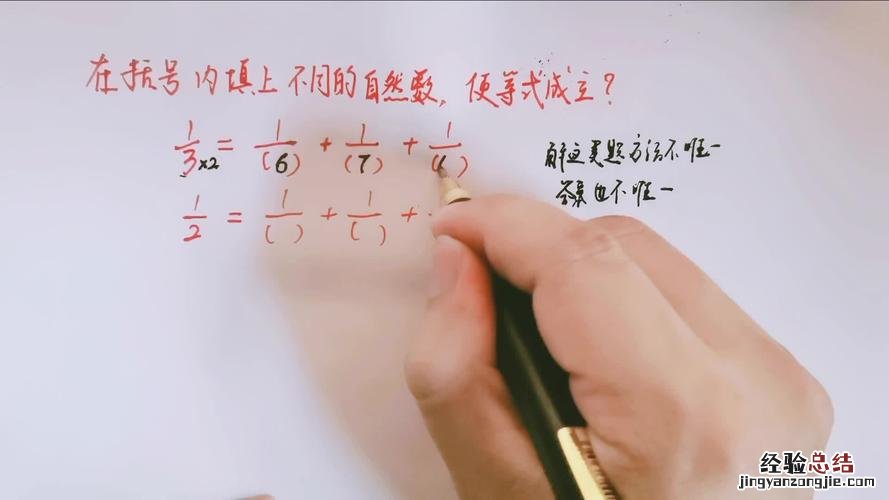 在括号内填上不同的自然数，使等式成立？
1/3×2 = 1/(6) + 1/(7) + 1/( )
解这类题方法不唯一
答案也不唯一
1/2 = 1/( ) + 1/( ) +
经验总结
jingyanzongjie.com